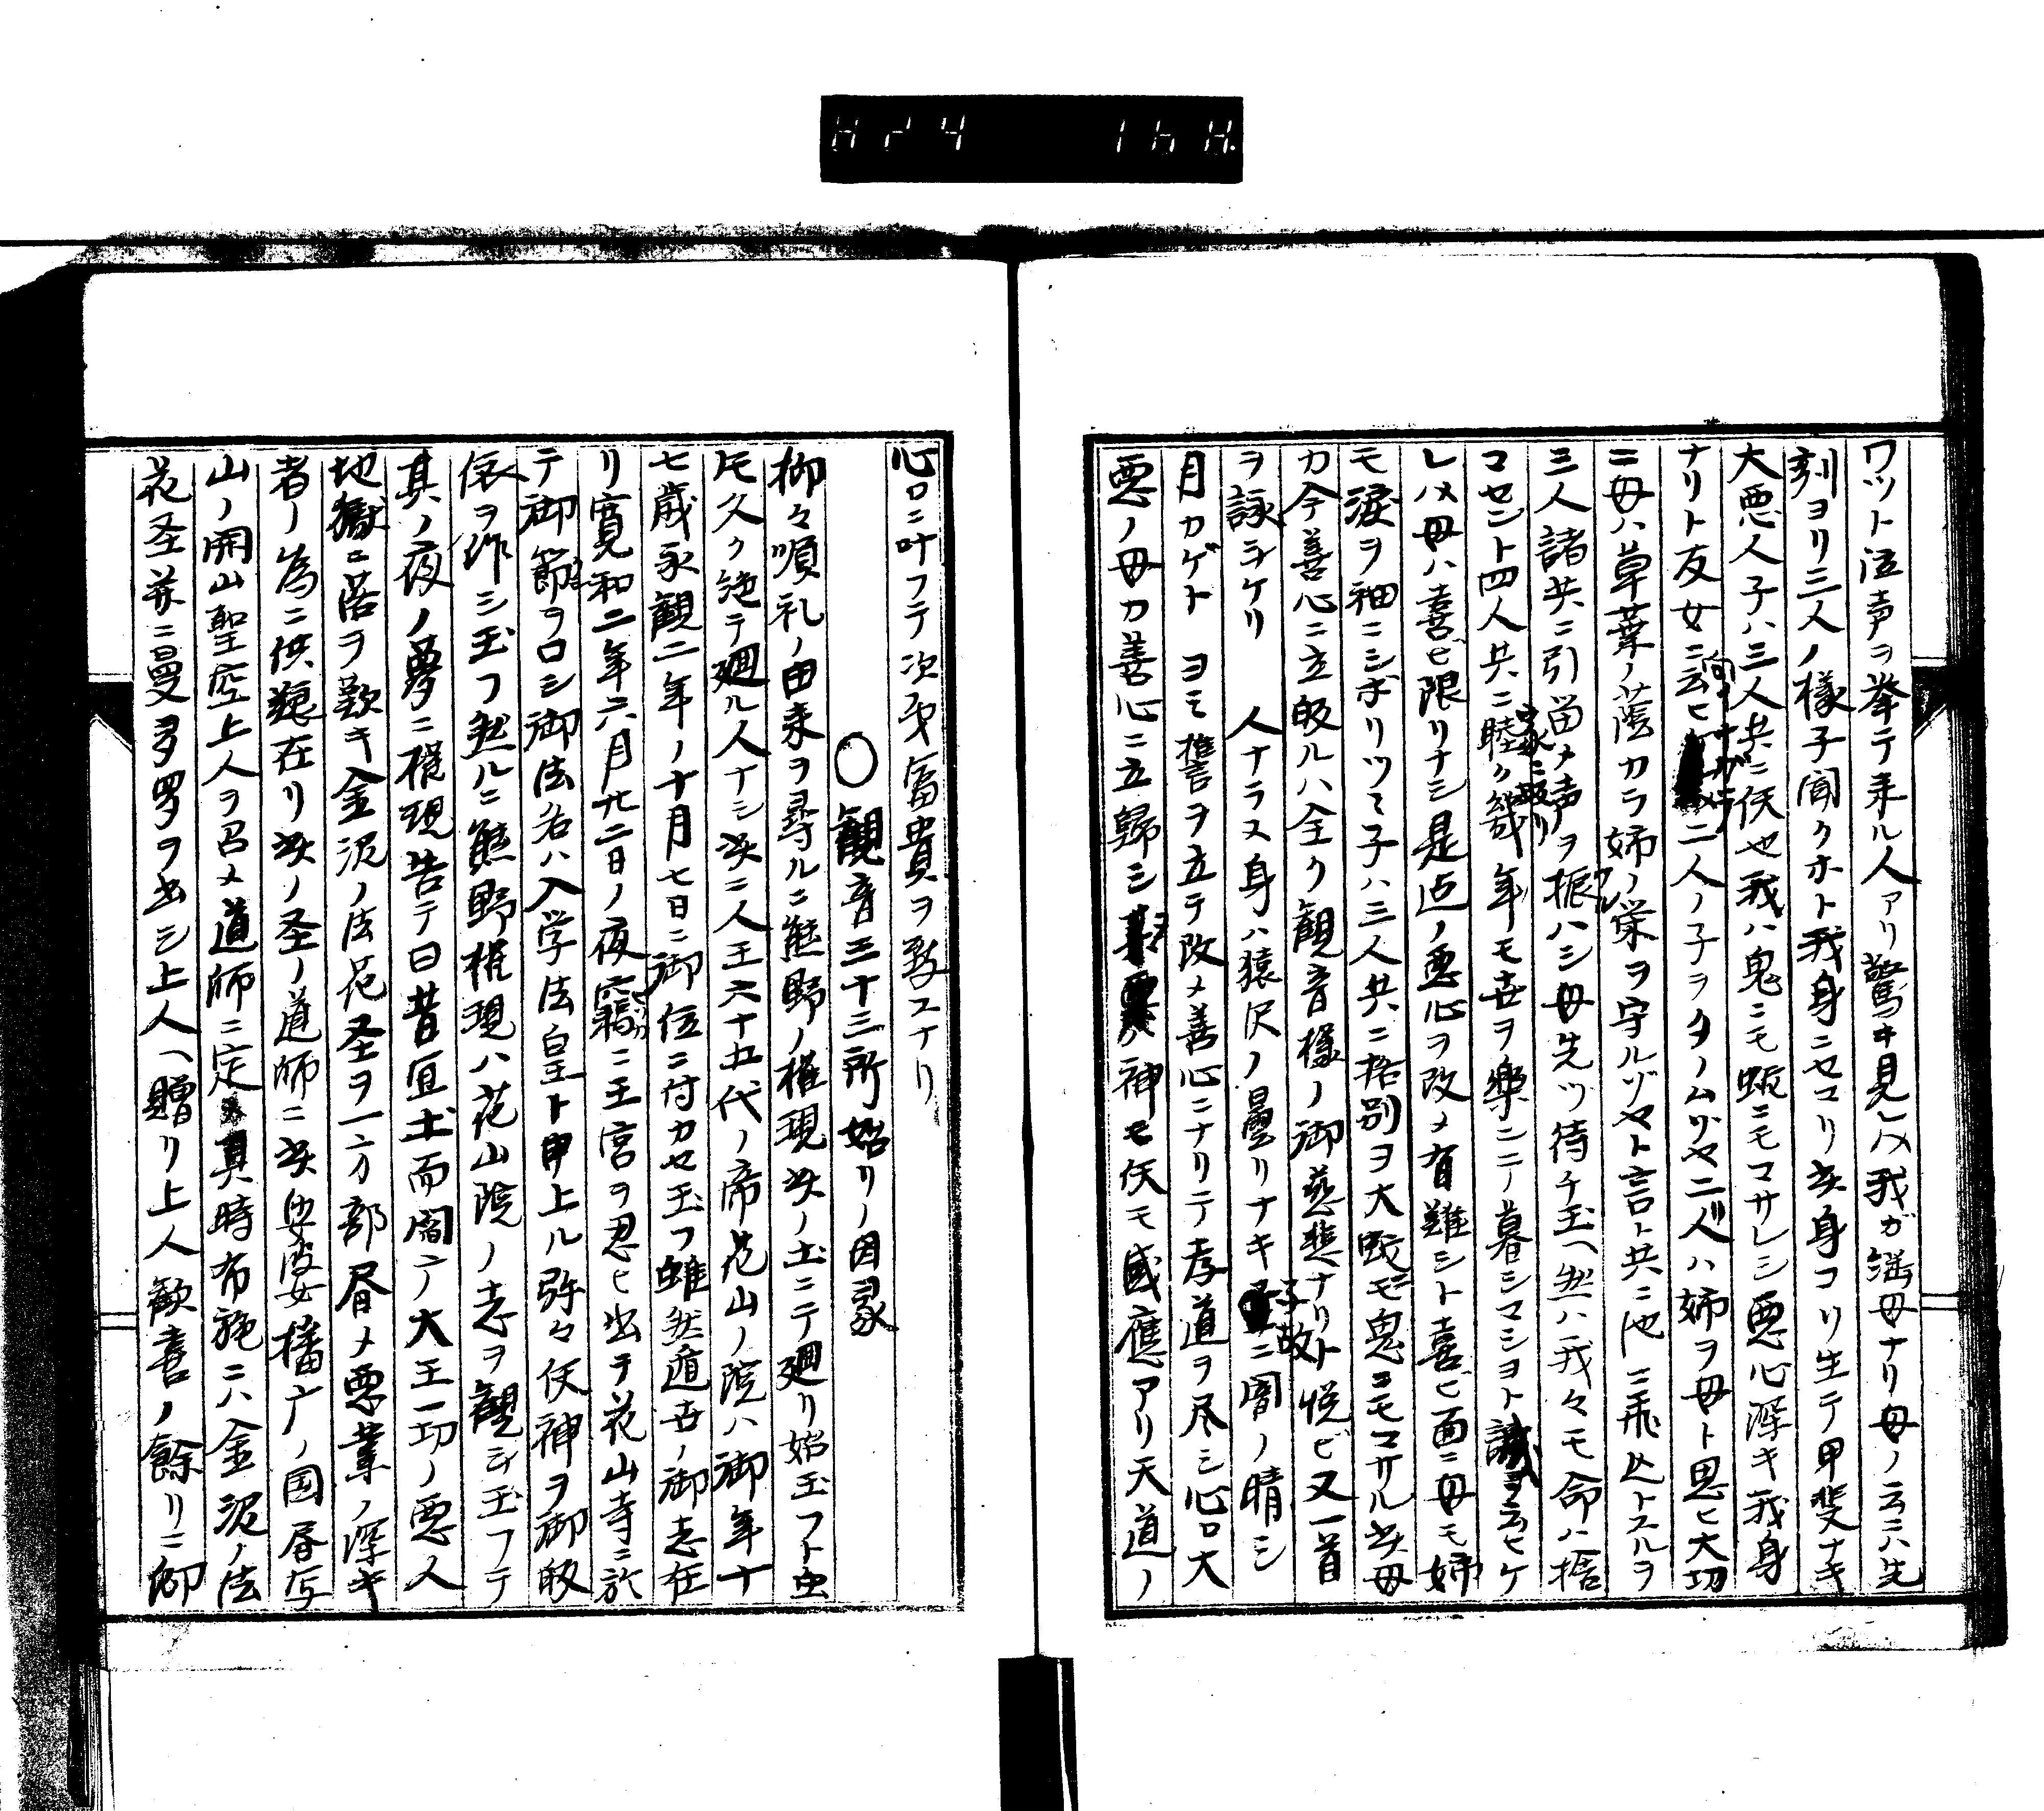 ワット泣声ヲ挙テ来ル人アリ驚キ見レハ我ガ継母ナリ母ノ云ニハ先
刻ヨリ三人ノ様子聞クホト我身ニセマリ我身コリ生テ甲斐ナキ
大悪人子ハ三人共ニ仏也我ハ鬼ニモ蛇ニモマサレシ悪心深キ我身
ナリト友女ニ向イナガラ云ヒ二人ノ子ヲタノムゾヤ二人ハ姉ヲ母ト思ヒ大切
ニ母ハ草葉ノ蔭カラ姉ノ栄ヲ守ルゾヤト言ト共ニ池ニ飛込トスルヲ
三人諸共ニ引留メ声ヲ振ハシ母先ツ待チ玉ヘ然ハ我々モ命ハ捨
マセント四人共ニ家ニ皈リ睦ク幾年モ世ヲ楽ニテ暮シマショト誠ヲ云ヒケ
レハ母ハ喜ビ限リナシ是迄ノ悪心ヲ改メ有難シト喜ビ面ニ母モ姉
モ涙ヲ袖ニシボリツヽ子ハ三人共ニ格別ヲ大蛇モ鬼ヨモマサル此母
カ今善心ニ立皈ルハ全ク観音様ノ御慈悲ナリト悦ビ又一首
ヲ詠ミケリ 人ナラヌ身ハ猿沢ノ曇リナキ子故ニ闇ノ晴シ
月カゲト ヨミ誓ヲ立テ改メ善心ニナリテ孝道ヲ尽シ心ロ大
悪ノ母カ善心ニ立歸シ神モ仏モ感應アリ天道ノ
心ロニ叶フテ次第富貴ヲ致スナリ
〇観音三十三所始リノ因縁
抑々順礼ノ由来ヲ尋ルニ熊野ノ権現此ノ土ニテ廻リ始玉フト虫
𪜈久ク絶テ廻ル人ナシ此ニ人王六十五代ノ帝花山ノ院ハ御年十
七歳永観二年ノ十月七日ニ御位ニ付カセ玉フ雖然遁世ノ御志在
リ寛和二年六月廿二日ノ夜竊ニ王宮ヲ忍ヒ出テ花山寺ニ於
テ御節ヲロシ御法名ハ入学法皇ト申上ル弥々仏神ヲ御皈
依ヲ作シ玉フ然ルニ熊野権現ハ花山院ノ志ヲ観シ玉フテ
其ノ夜ノ夢ニ権現告テ曰昔冝土而閻广大王一切ノ悪人
地獄ニ落ヲ歎キ金泥ノ法花圣ヲ一万部書メ悪業ノ深キ
者ノ為ニ供養在リ此ノ圣ノ道師ニ此娑婆播广ノ国書写
山ノ開山聖空上人ヲ召メ道師ニ定其時布施ニハ金泥ノ法
花圣并ニ曼多罗ヲ出シ上人ヘ贈リ上人歓喜ノ餘リニ御